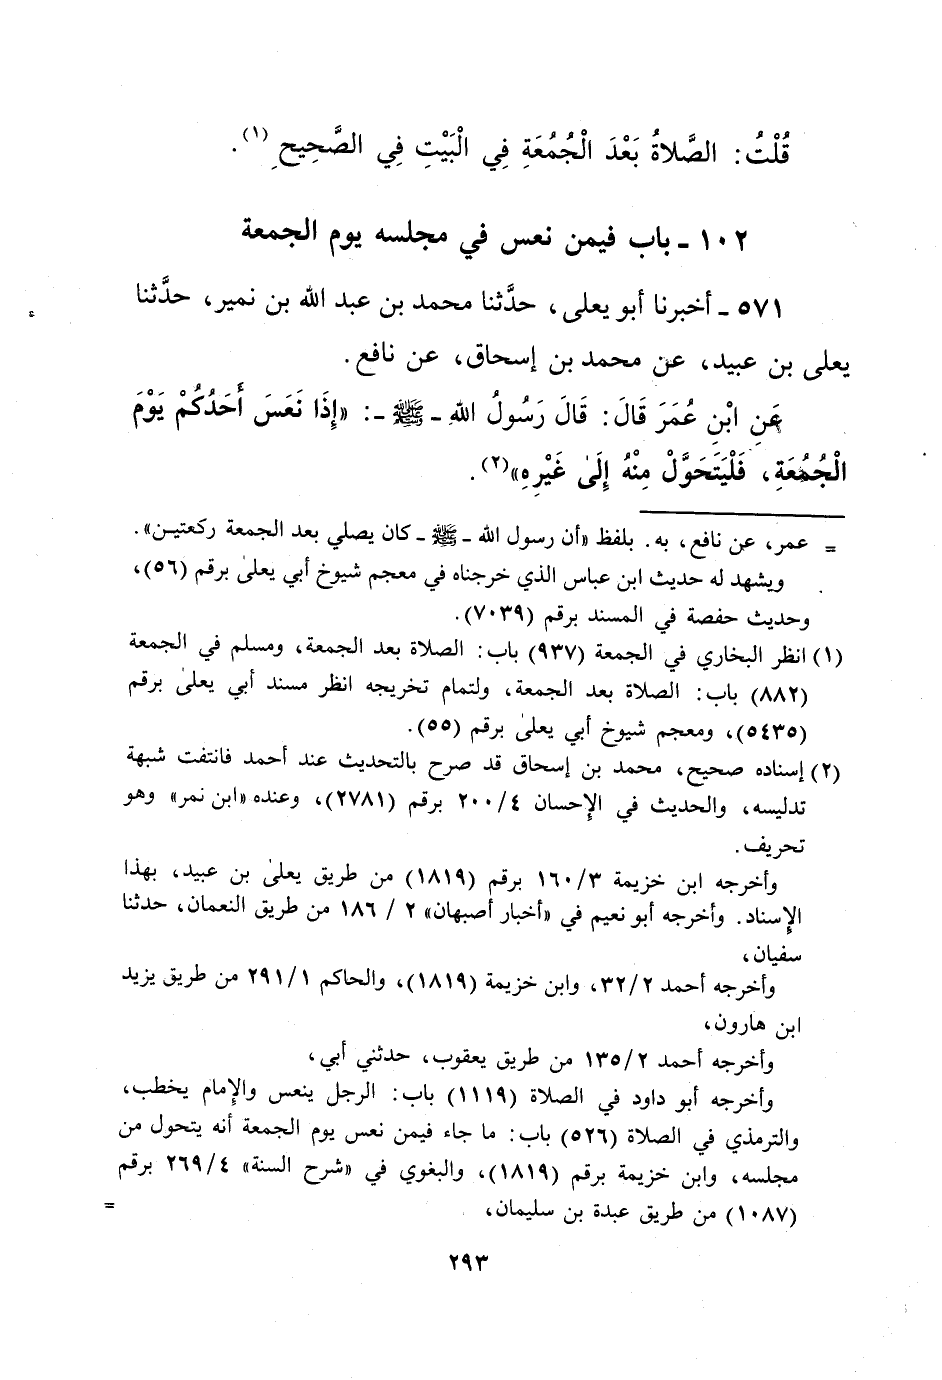 قُلْتُ: الصَّلاةُ بَعْدَ الْجُمُعَةِ فِي الْبَيْتِ فِي الصَّحِيحِ (١).
١٠٢ ـ باب فيمن نعس في مجلسه يوم الجمعة
٥٧١ ـ أخبرنا أبو يعلى، حدَّثنا محمد بن عبد الله بن نمير، حدَّثنا
يعلى بن عبيد، عن محمد بن إسحاق، عن نافع.
عَنِ ابْنِ عُمَرَ قَالَ: قَالَ رَسُولُ اللهِ ـ ﷺ ـ: «إِذَا نَعَسَ أَحَدُكُمْ يَوْمَ
الْجُمُعَةِ، فَلْيَتَحَوَّلْ مِنْهُ إِلَىٰ غَيْرِهِ»(٢).
= عمر، عن نافع، به. بلفظ «أن رسول الله ـ ﷺ ـ كان يصلي بعد الجمعة ركعتين».
ويشهد له حديث ابن عباس الذي خرجناه في معجم شيوخ أبي يعلىٰ برقم (٥٦)،
وحديث حفصة في المسند برقم (٧٠٣٩).
(١) انظر البخاري في الجمعة (٩٣٧) باب: الصلاة بعد الجمعة، ومسلم في الجمعة
(٨٨٢) باب: الصلاة بعد الجمعة، ولتمام تخريجه انظر مسند أبي يعلىٰ برقم
(٥٤٣٥)، ومعجم شيوخ أبي يعلىٰ برقم (٥٥).
(٢) إسناده صحيح، محمد بن إسحاق قد صرح بالتحديث عند أحمد فانتفت شبهة
تدليسه، والحديث في الإحسان ٢٠٠/٤ برقم (٢٧٨١)، وعنده «ابن نمر» وهو
تحريف.
وأخرجه ابن خزيمة ١٦٠/٣ برقم (١٨١٩) من طريق يعلىٰ بن عبيد، بهذا
الإسناد. وأخرجه أبو نعيم في «أخبار أصبهان» ٢ / ١٨٦ من طريق النعمان، حدثنا
سفيان،
وأخرجه أحمد ٣٢/٢، وابن خزيمة (١٨١٩)، والحاكم ٢٩١/١ من طريق يزيد
ابن هارون،
وأخرجه أحمد ١٣٥/٢ من طريق يعقوب، حدثني أبي،
وأخرجه أبو داود في الصلاة (١١١٩) باب: الرجل ينعس والإمام يخطب،
والترمذي في الصلاة (٥٢٦) باب: ما جاء فيمن نعس يوم الجمعة أنه يتحول من
مجلسه، وابن خزيمة برقم (١٨١٩)، والبغوي في «شرح السنة» ٢٦٩/٤ برقم
(١٠٨٧) من طريق عبدة بن سليمان، =
٢٩٣